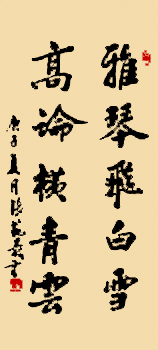 雅琴飛白雪
高論橫青雲
庚子夏月